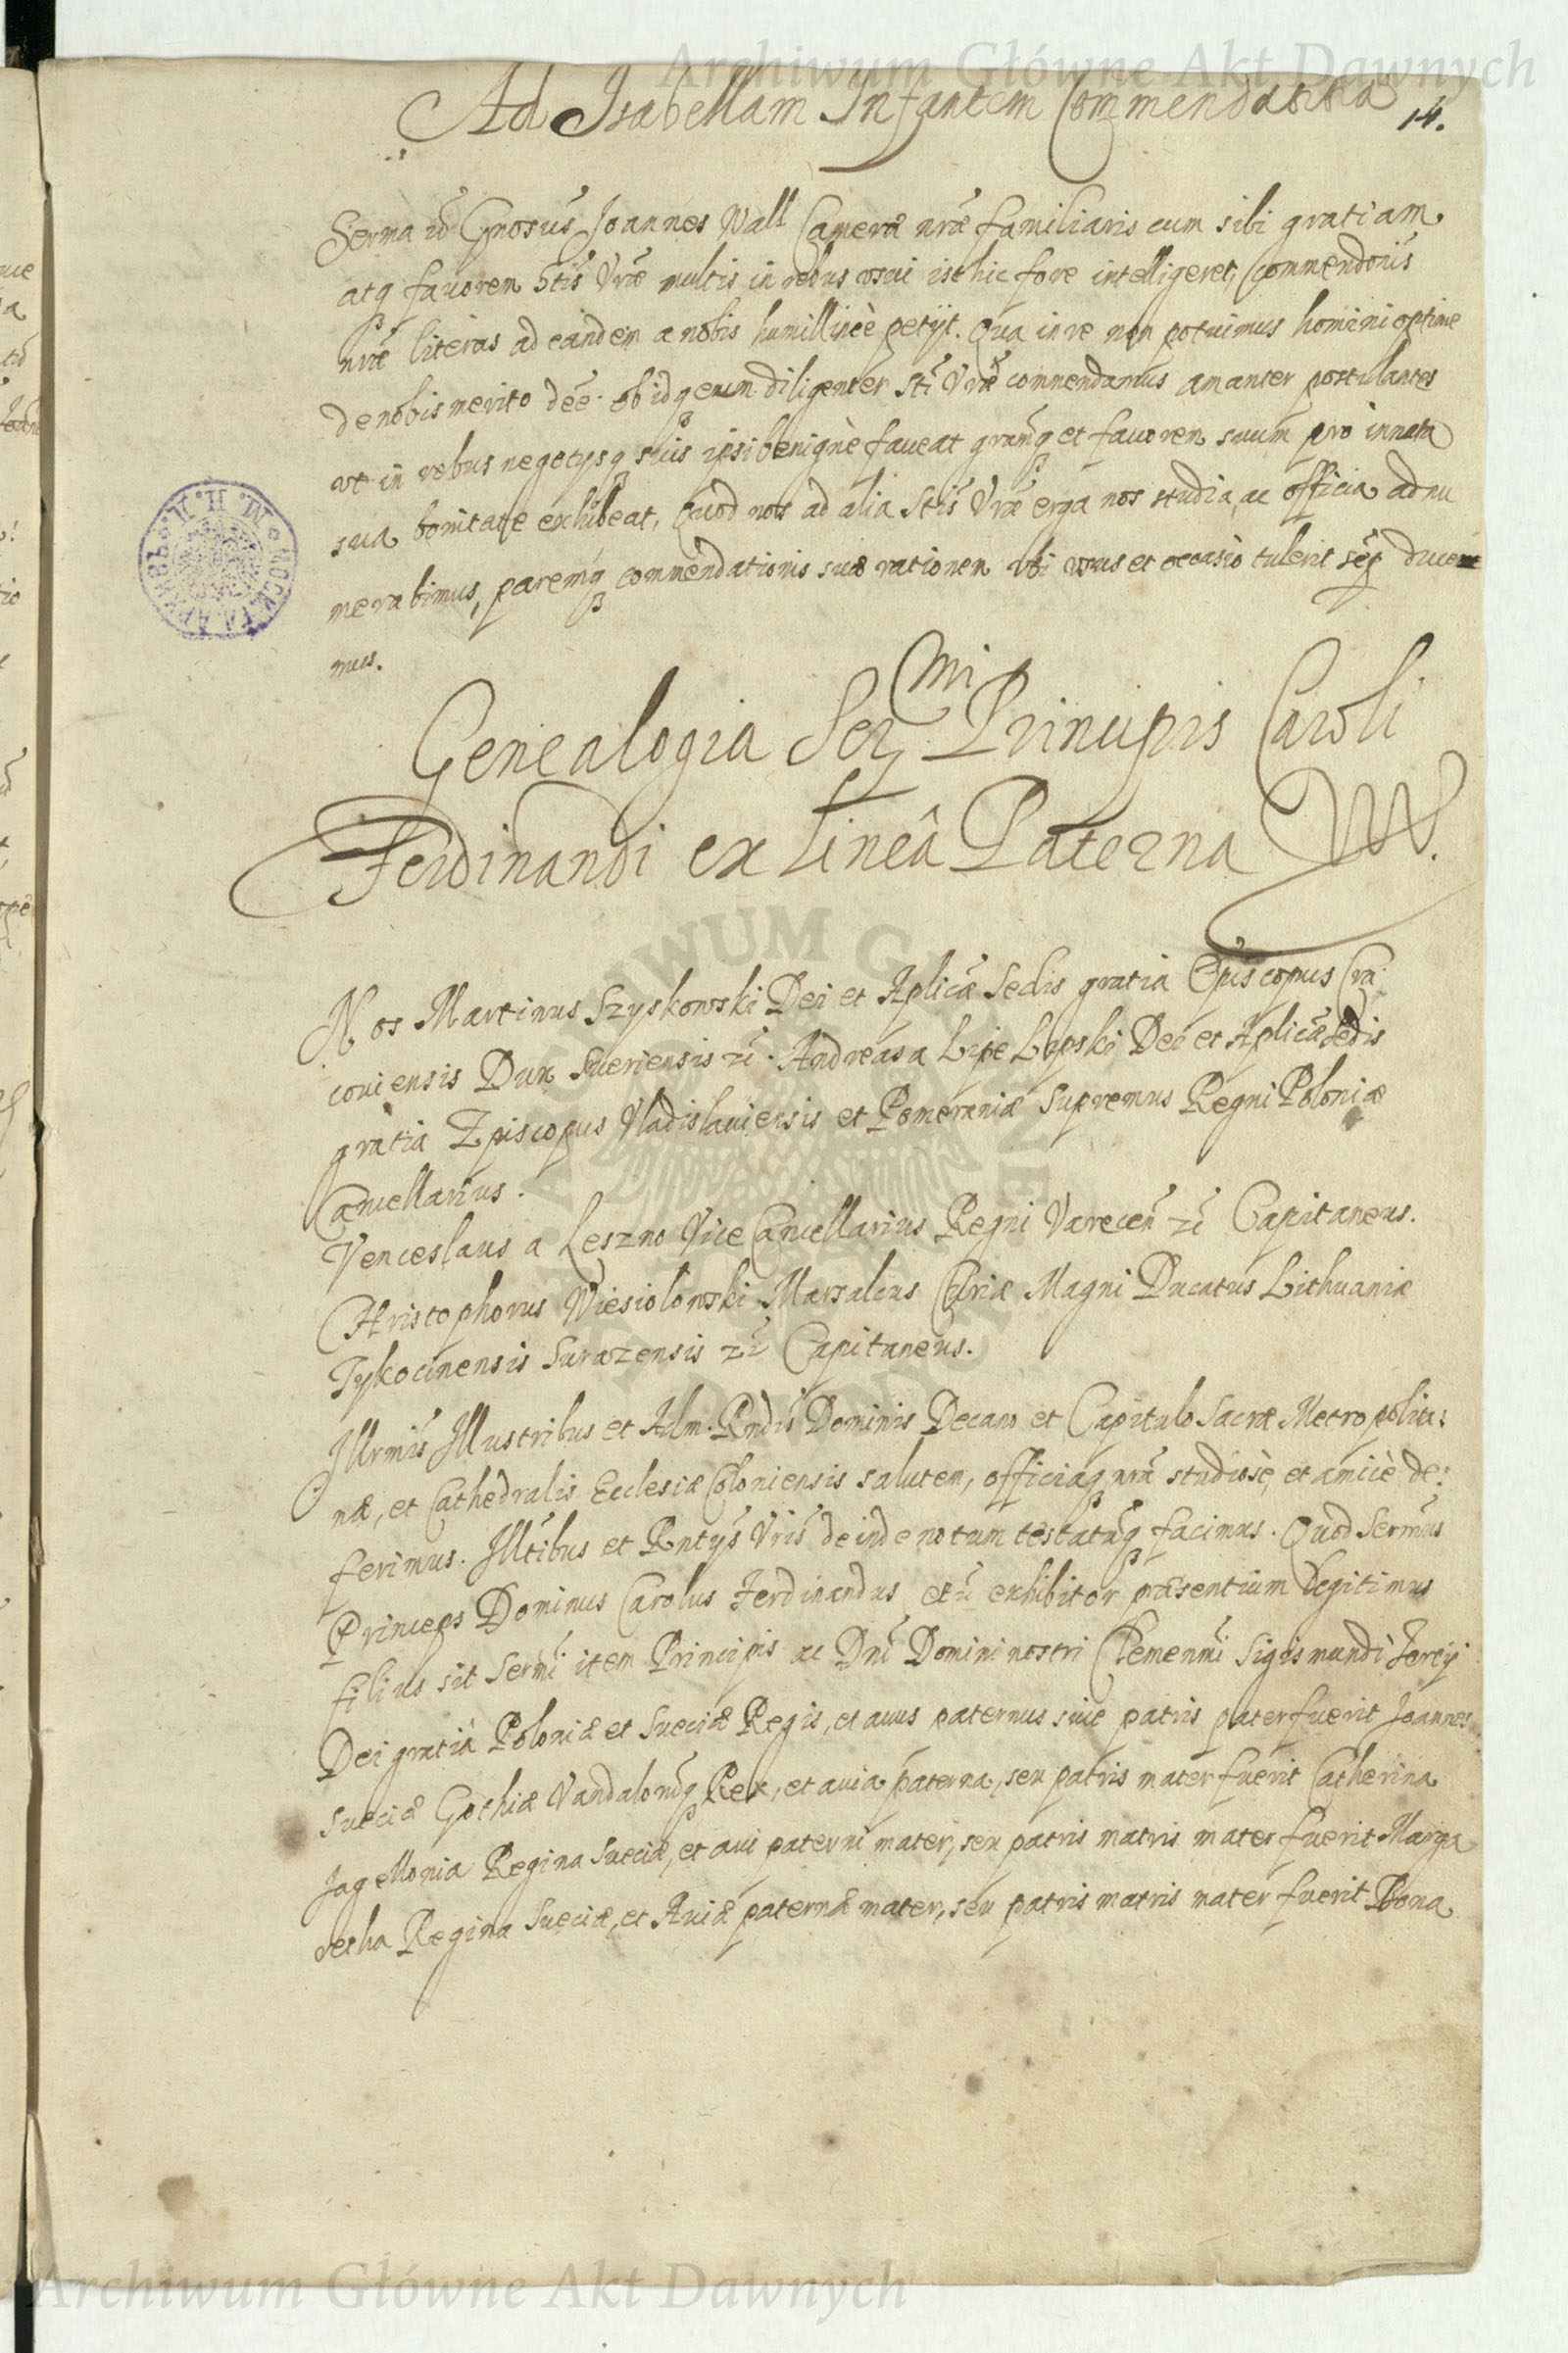 Archiwum Główne Akt Dawnych
Ad Isabellam Infantem Commendatitia
14.
Serma etc Gnosus Joannes Wall Cameræ nræ familiaris cum sibi gratiam
atq favorem Stis Vræ multis in rebus usui isthic fore intelligeret, commendonis
nræ literas ad eandem a nobis humillimè petijt. Qua in re non potuimus homini optime
de nobis merito deē. ob idq eum diligenter Sti Vræ commendamus amanter postulantes
ut in rebus negotijsq suis ipsi benignè faveat gramq et favorem suum pro innata
sua bonitate exhibeat, Quod nos ad alia Stis Vræ erga nos studia, ac officia adnu
merabimus, paremq commendationis suæ rationem ubi usus et occasio tulerit sēp duce
mus.
Genealogia Ser mi Principis Caroli
Ferdinandi ex Lineâ Paterna
Nos Martinus Szyskowski Dei et Aplicæ Sedis gratia Episcopus Cra
coviensis Dux Sveriensis etc. Andreas a Lipe Lipski Dei et Aplicæ Sedis
gratia Episcopus Vladislaviensis et Pomeraniæ Supremus Regni Poloniæ
Cancellarius.
Venceslaus a Leszno Vice Cancellarius Regni Varecen̄ etc Capitaneus.
Christophorus Wiesiolowski Marsalcus Curiæ Magni Ducatus Lithuaniæ
Tykocinensis Surazensis etc Capitaneus.
Illrmis Illustribus et Adm. Rndis Dominis Decano et Capitulo Sacræ Metropolita:
næ, et Cathedralis Ecclesiæ Coloniensis salutem, officiaq nrā studiosè, et amicè de:
ferimus. Illtibus et Rntijs Vris deinde notum testatumq facimus. Quod Sermus
Princeps Dominus Carolus Ferdinandus etc exhibitor præsentium Legitimus
filius sit Sermi item Principis ac Dni Domini nostri Clemenmi Sigismundi Tertij
Dei gratia Poloniæ et Sueciæ Regis, et auus paternus siue patris pater fuerit Joannes
Sueciæ Gothiæ Vandalorumq Rex, et auia paterna, seu patris mater fuerit Catherina
Jagellonia Regina Sueciæ, et aui paterni mater, seu patris matris mater fuerit Marga
retha Regina Sueciæ, et Auiæ paternæ mater, seu patris matris mater fuerit Bona
Archiwum Główne Akt Dawnych